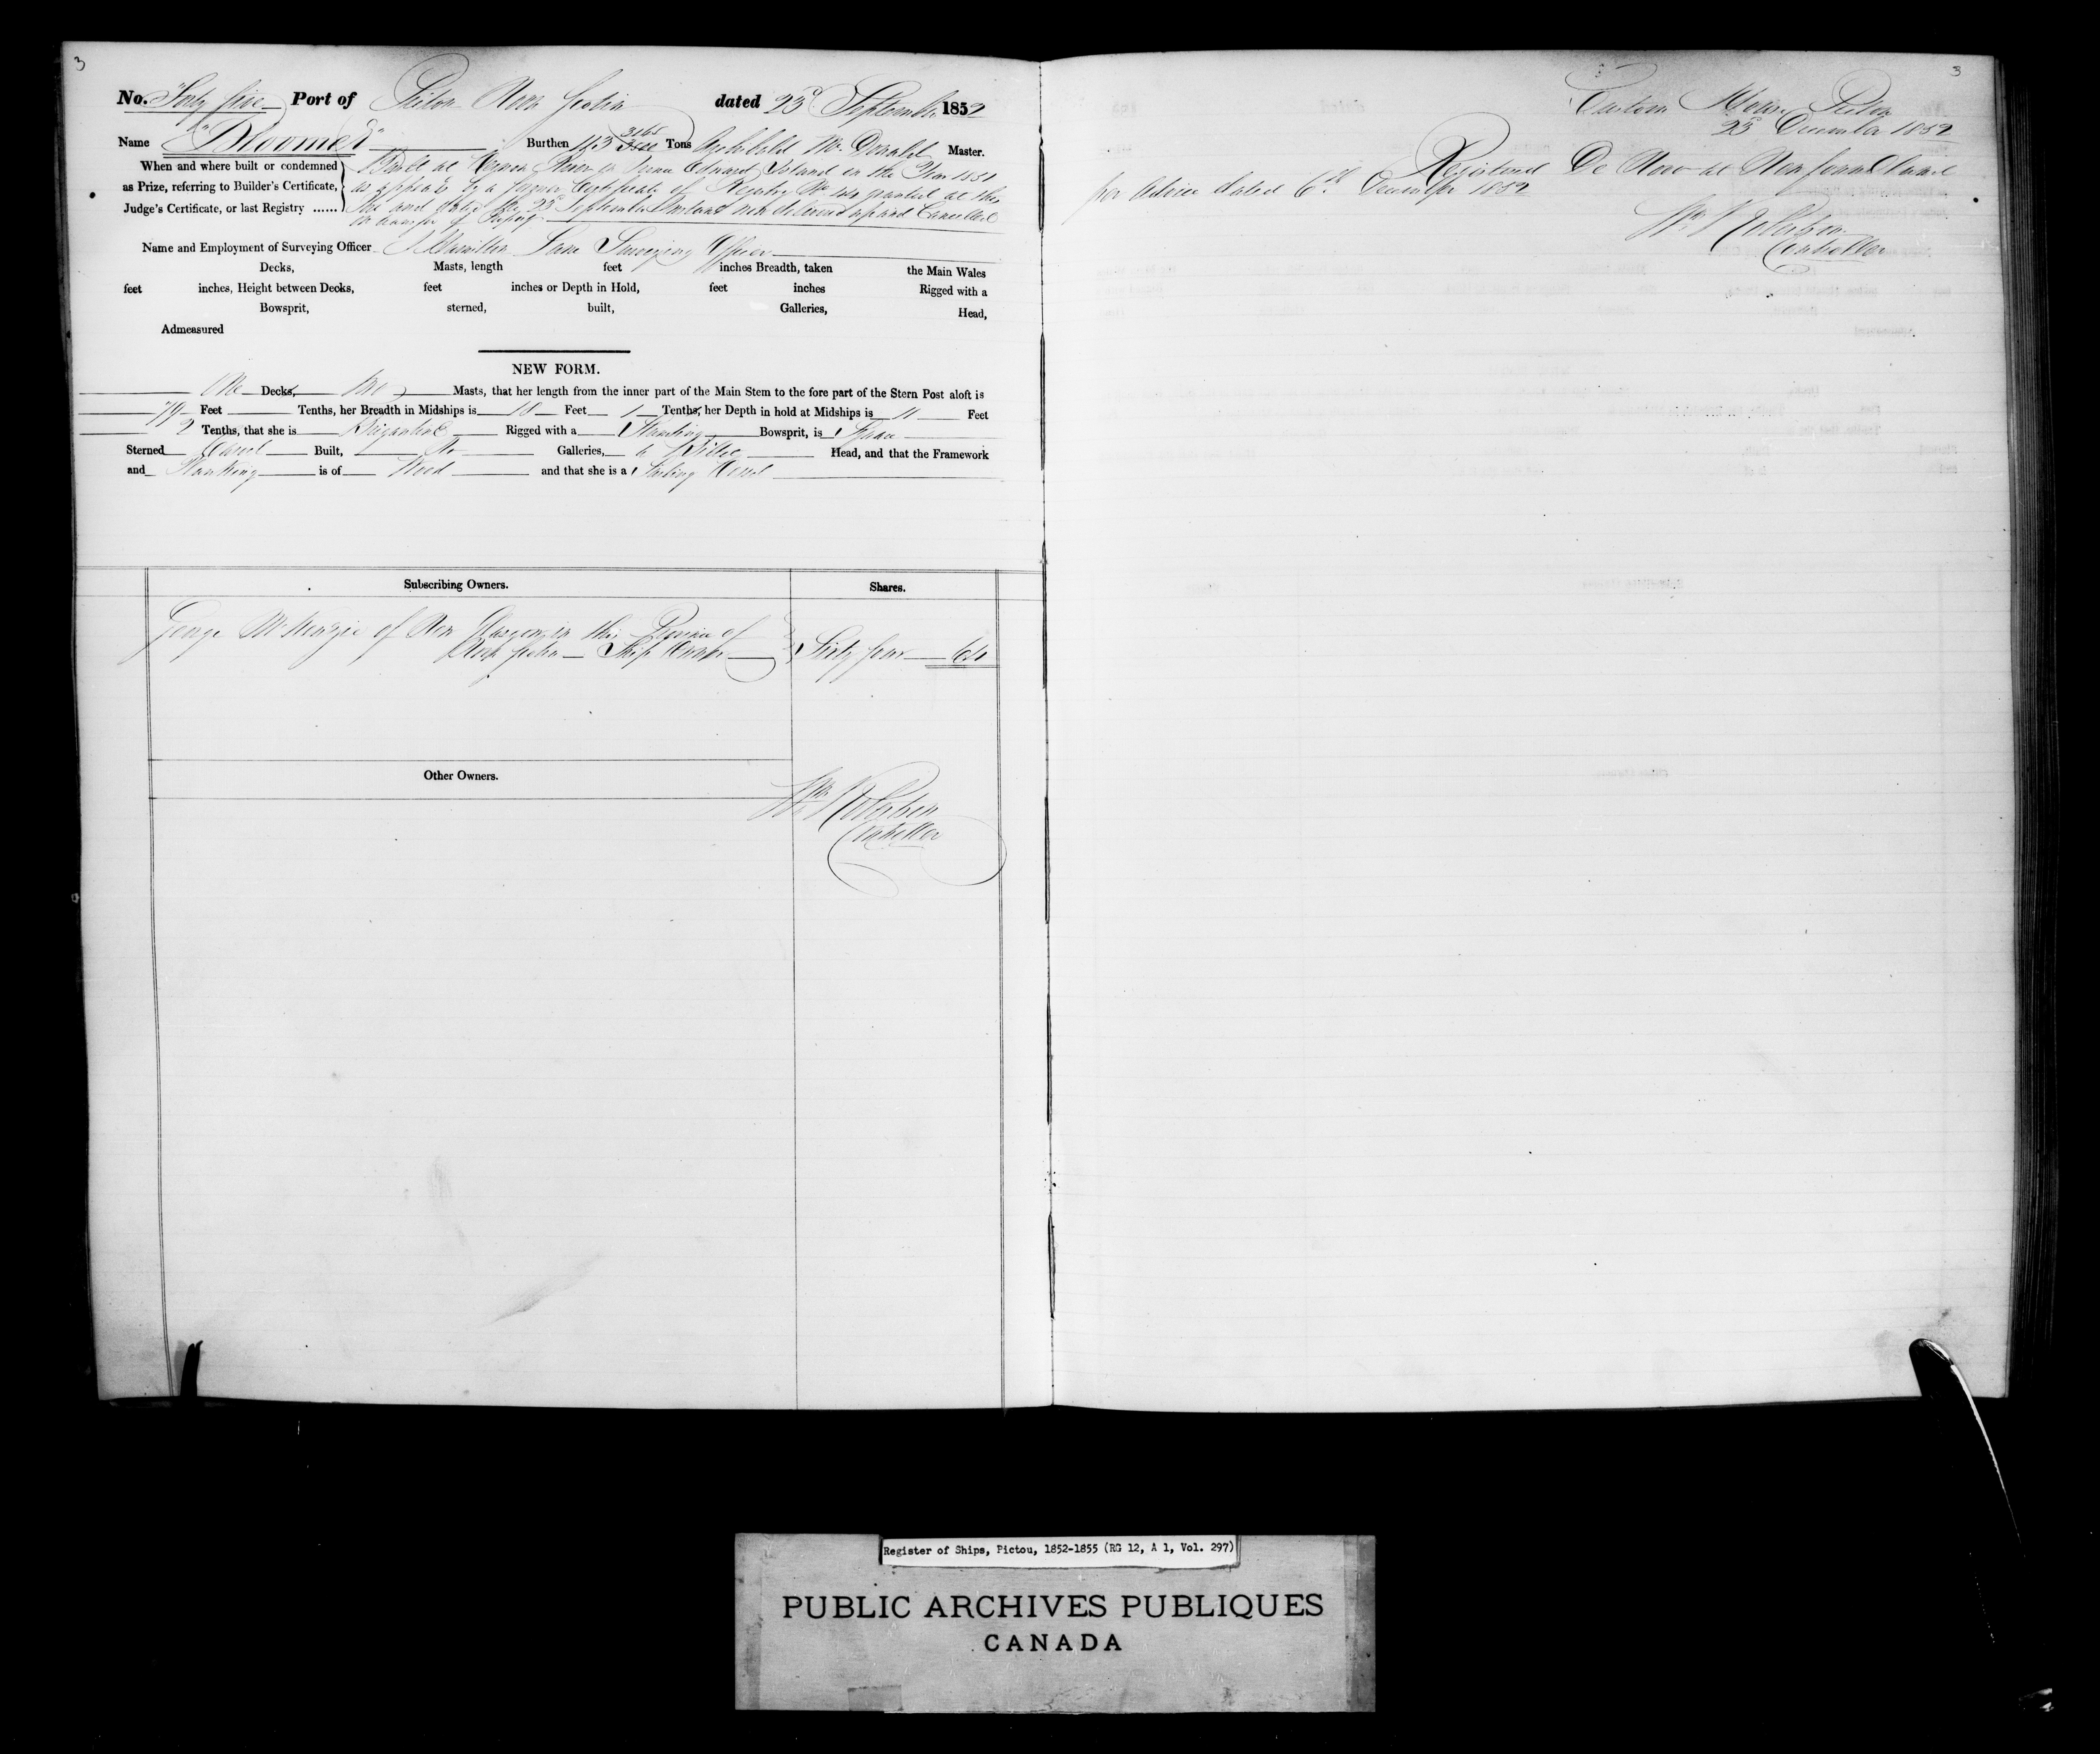 3
No. Forty five Port of Pictou Nova Scotia dated 23d September 1852
Name "Bloomer" Burthen 113 3165/3500 Tons Archibald McDonald Master.
When and where built or condemned
as Prize, referring to Builder's Certificate,
Judge's Certificate, or last Registry ......
Built at Vernon River in Prince Edward Island in the Year 1851
as appears by a former Certificate of Registry No. granted at this
Port and dated the 23d September Instant now delivered up and Cancelled
on transfer of Property
Name and Employment of Surveying Officer Hamilton Lane Surveying Officer
Decks, Masts, length feet inches Breadth, taken the Main Wales
feet inches, Height between Decks, feet inches or Depth in Hold, feet inches Rigged with a
Bowsprit, sterned, built, Galleries, Head,
Admeasured
NEW FORM.
One Decks, Two Masts, that her length from the inner part of the Main Stem to the fore part of the Stern Post aloft is
79 Feet Tenths, her Breadth in Midships is 18 Feet 1 Tenths, her Depth in hold at Midships is 11 Feet
2 Tenths, that she is Brigantine Rigged with a Standing Bowsprit, is Square
Sterned Carvel Built, No Galleries, a Billet Head, and that the Framework
and Planking is of Wood and that she is a Sailing Vessel
Subscribing Owners. Shares.
George McKenzie of New Glasgow in this Province of
Nova Scotia Ship Owner Sixty four 64
Other Owners.
Wm Robertson
Controller
3
Custom House Pictou
23d December 1852
Registered De Novo at Newfoundland
per Advice dated 6th December 1852
Wm Robertson
Controller
Register of Ships, Pictou, 1852-1855 (RG 12, A 1, Vol. 297)
PUBLIC ARCHIVES PUBLIQUES
CANADA